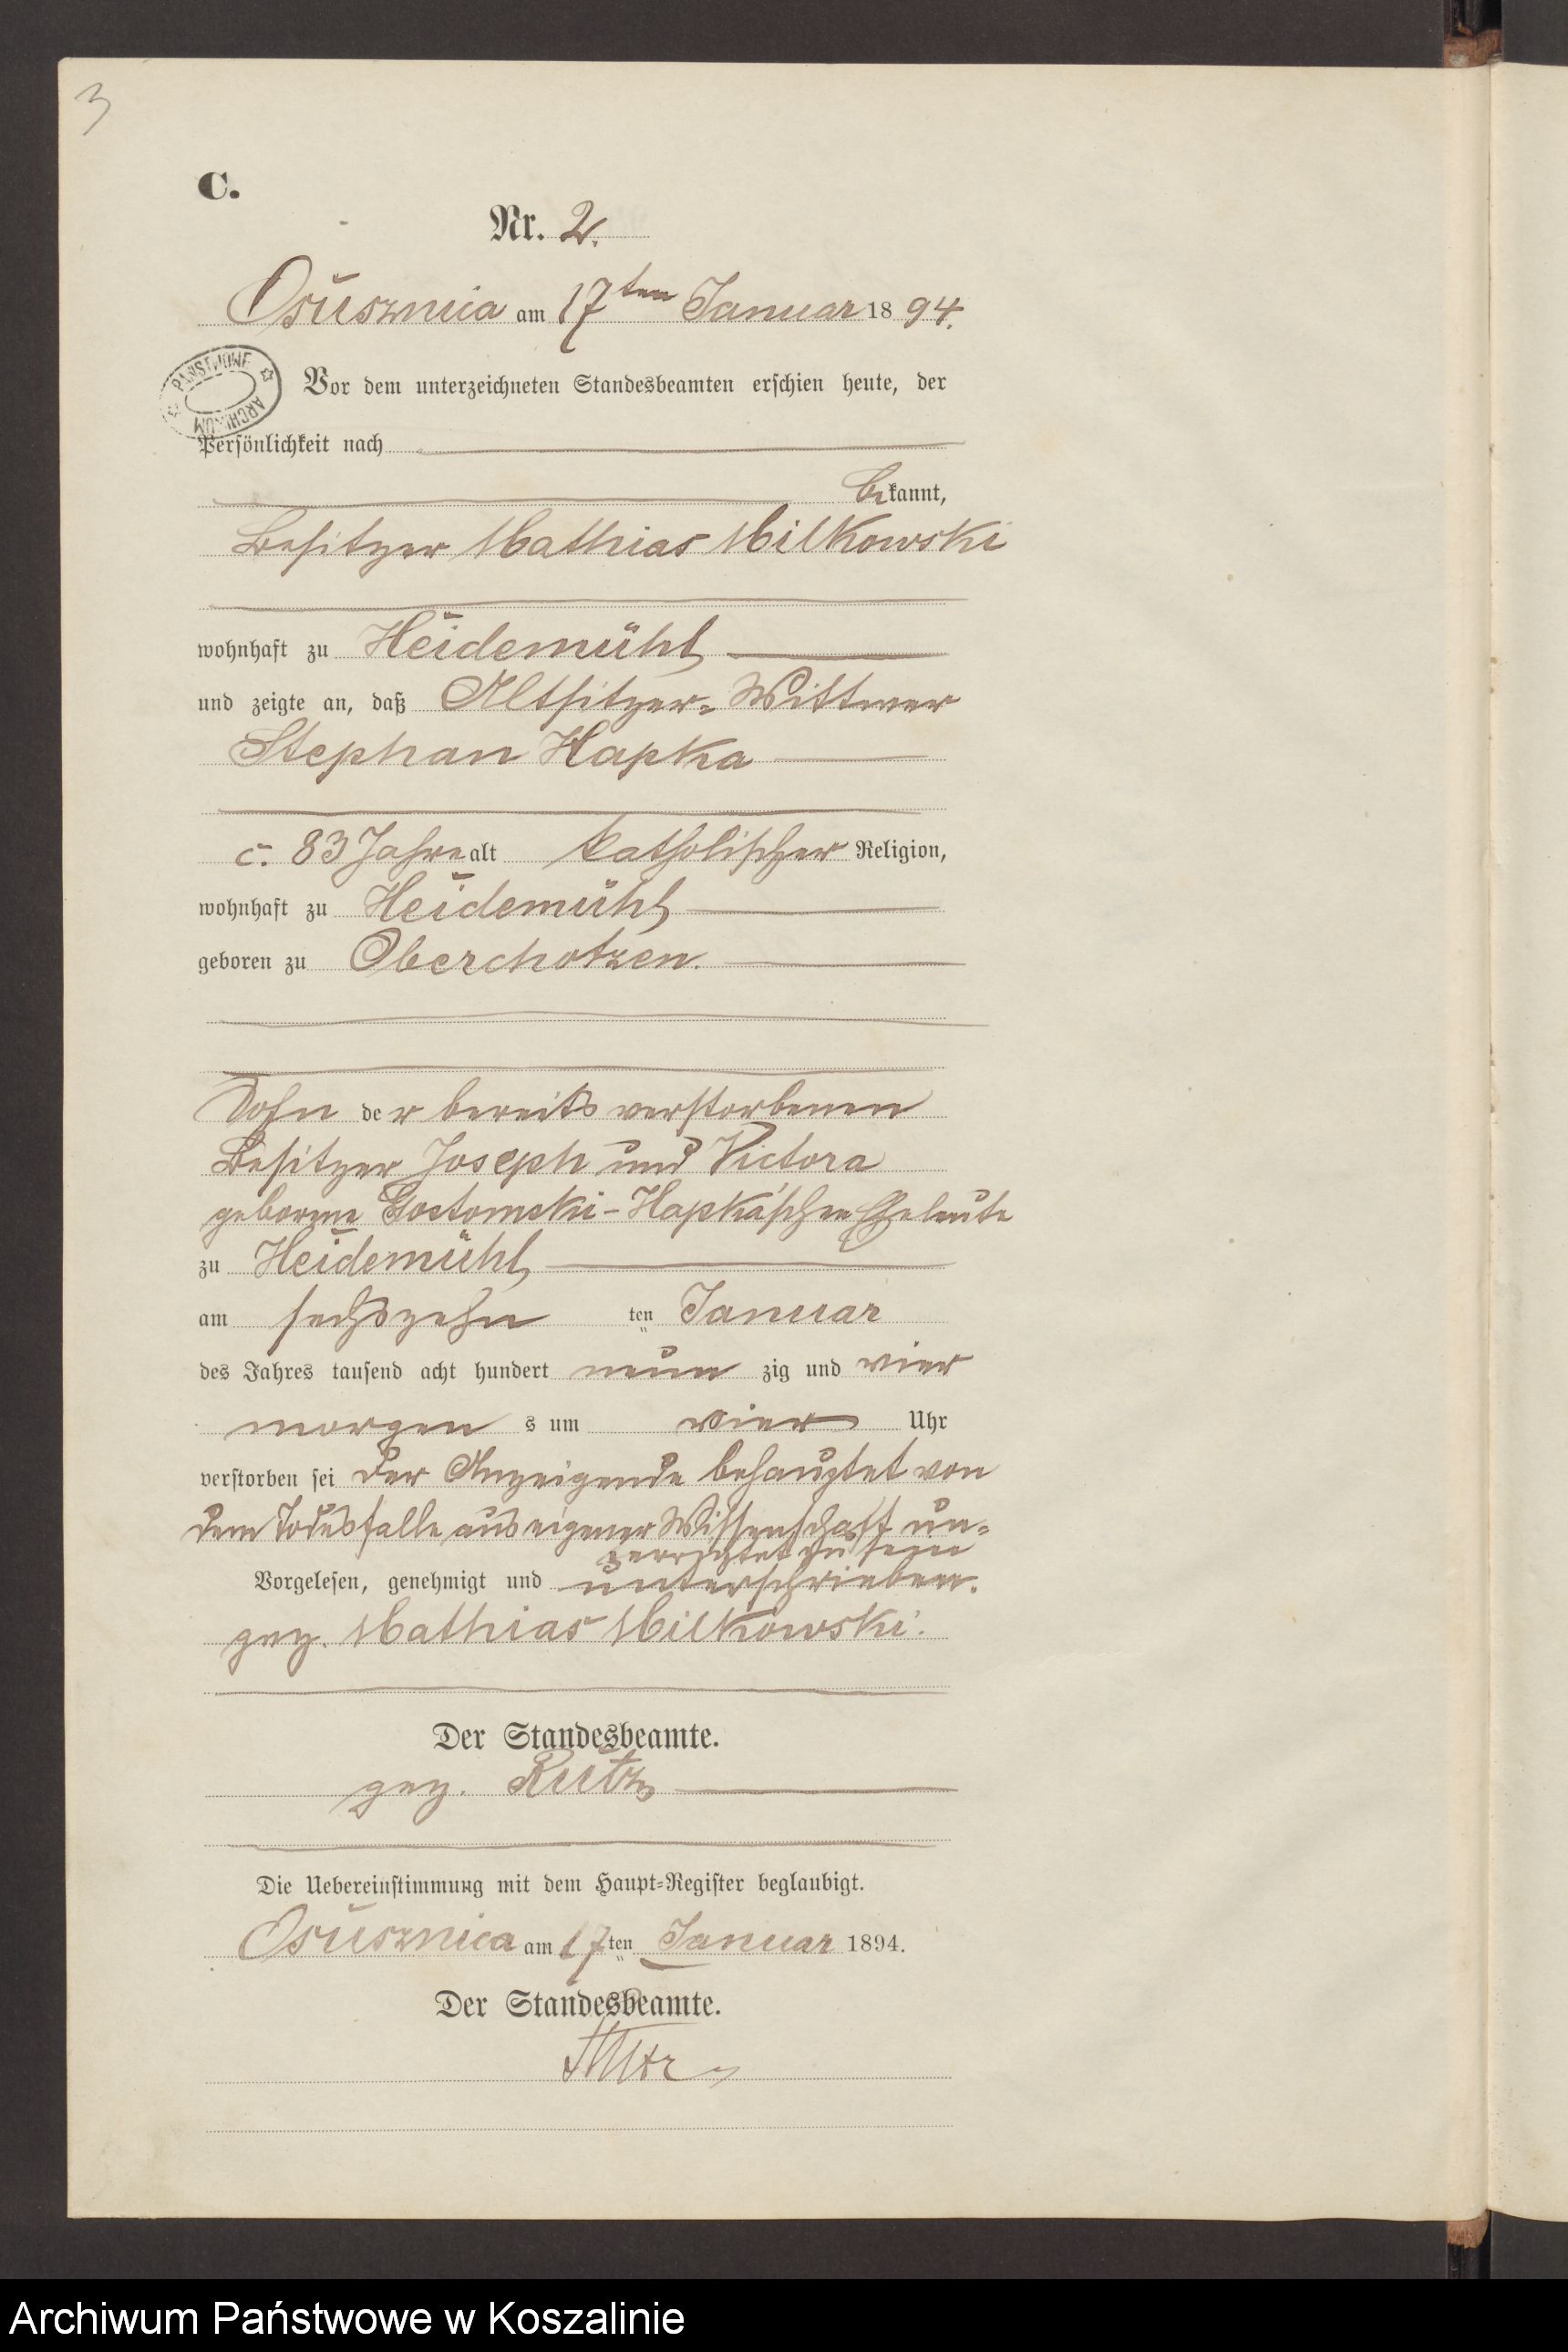 3
C.
Nr. 2.
Osusznica am 17ten Januar 1894.
PAŃSTWOWE
ARCHIWUM
Vor dem unterzeichneten Standesbeamten erschien heute, der
Persönlichkeit nach
bekannt,
Besitzer Mathias Milkowski
wohnhaft zu Heidemühl
und zeigte an, daß Altsitzer-Wittwer
Stephan Hapka
c. 83 Jahre alt katholischer Religion,
wohnhaft zu Heidemühl
geboren zu Oberchotzen.
Sohn der bereits verstorbenen
Besitzer Joseph und Victora
geborene Gostomski-Hapka'schen Eheleute
zu Heidemühl
am sechszehn ten Januar
des Jahres tausend acht hundert neun zig und vier
morgen s um vier Uhr
verstorben sei der Anzeigende behauptet von
dem Todesfalle aus eigener Wissenschaft un-
zu sein
Vorgelesen, genehmigt und unterschrieben.
gez. Mathias Milkowski.
Der Standesbeamte.
gez. Rutz
Die Uebereinstimmung mit dem Haupt-Register beglaubigt.
Osusznica am 17ten Januar 1894.
Der Standesbeamte.
Rutz
Archiwum Państwowe w Koszalinie